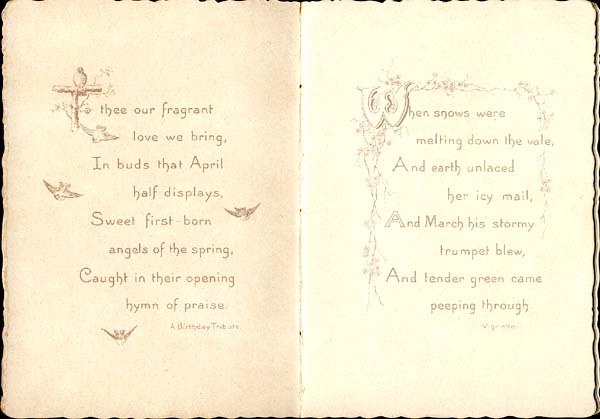 To thee our fragrant
love we bring,
In buds that April
half displays,
Sweet first-born
angels of the spring,
Caught in their opening
hymn of praise.
A Birthday Tribute.
When snows were
melting down the vale,
And earth unlaced
her icy mail,
And March his stormy
trumpet blew,
And tender green came
peeping through.